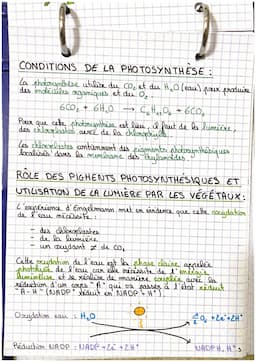 CONDITIONS DE LA PHOTOSYNTHÈSE :
La photosynthèse utilise du CO₂ et du H₂O (eau) pour produire
des molécules organiques et du O₂ :
6CO₂ + 6H₂O → C₆H₁₂O₆ + 6CO₂
Pour que cette photosynthèse est lieu, il faut de la lumière,
des chloroplastes avec de la chlorophylle.
Les chloroplastes contiennent des pigments photosynthétiques
localisés dans la membrane des thylakoïdes.
RÔLE DES PIGMENTS PHOTOSYNTHÉSIQUES ET
UTILISATION DE LA LUMIÈRE PAR LES VÉGÉTAUX :
L'expérience d'Engelmann met en évidence que cette oxydation
de l'eau nécessite :
- des chloroplastes
- de la lumière
- un oxydant ≠ de CO₂
Cette oxydation de l'eau est la phase claire appelée
photolyse de l'eau car elle nécessite de l'énergie
lumineuse et se réalise de manière couplée avec la
réduction d'un corps "A" qui va passer à l'état réduit
"A-H" (NADP⁺ réduit en NADP + H⁺).
Oxydation eau : H₂O ½ O₂ + 2e⁻ + 2H⁺
Réduction NADP : NADP + 2e⁻ + 2H⁺ NADPH, H⁺